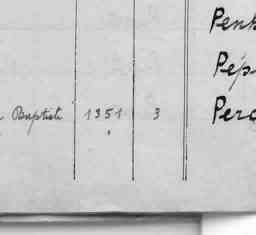 Penk
Pép
Baptiste 1351 3 Perc